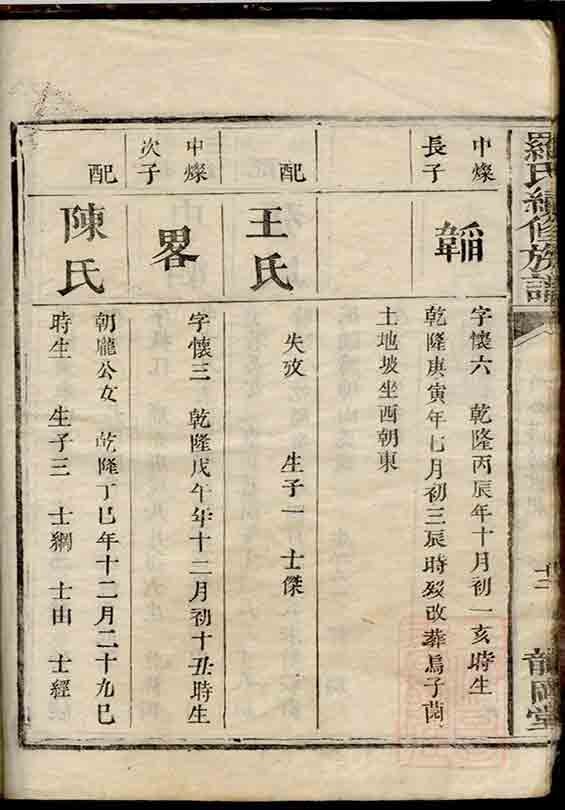 羅氏續修族譜
龍岡堂
中燦
長子
韜
字懷六　乾隆丙辰年十月初一亥時生
乾隆庚寅年七月初三辰時殁改葬馬子薗
土地坡坐西朝東
配
王氏
失攷　生子一　士傑
中燦
次子
畧
字懷三　乾隆戊午年十二月初十丑時生
配
陳氏
朝龐公女　乾隆丁巳年十二月二十九巳
時生　生子三　士綱　士由　士經